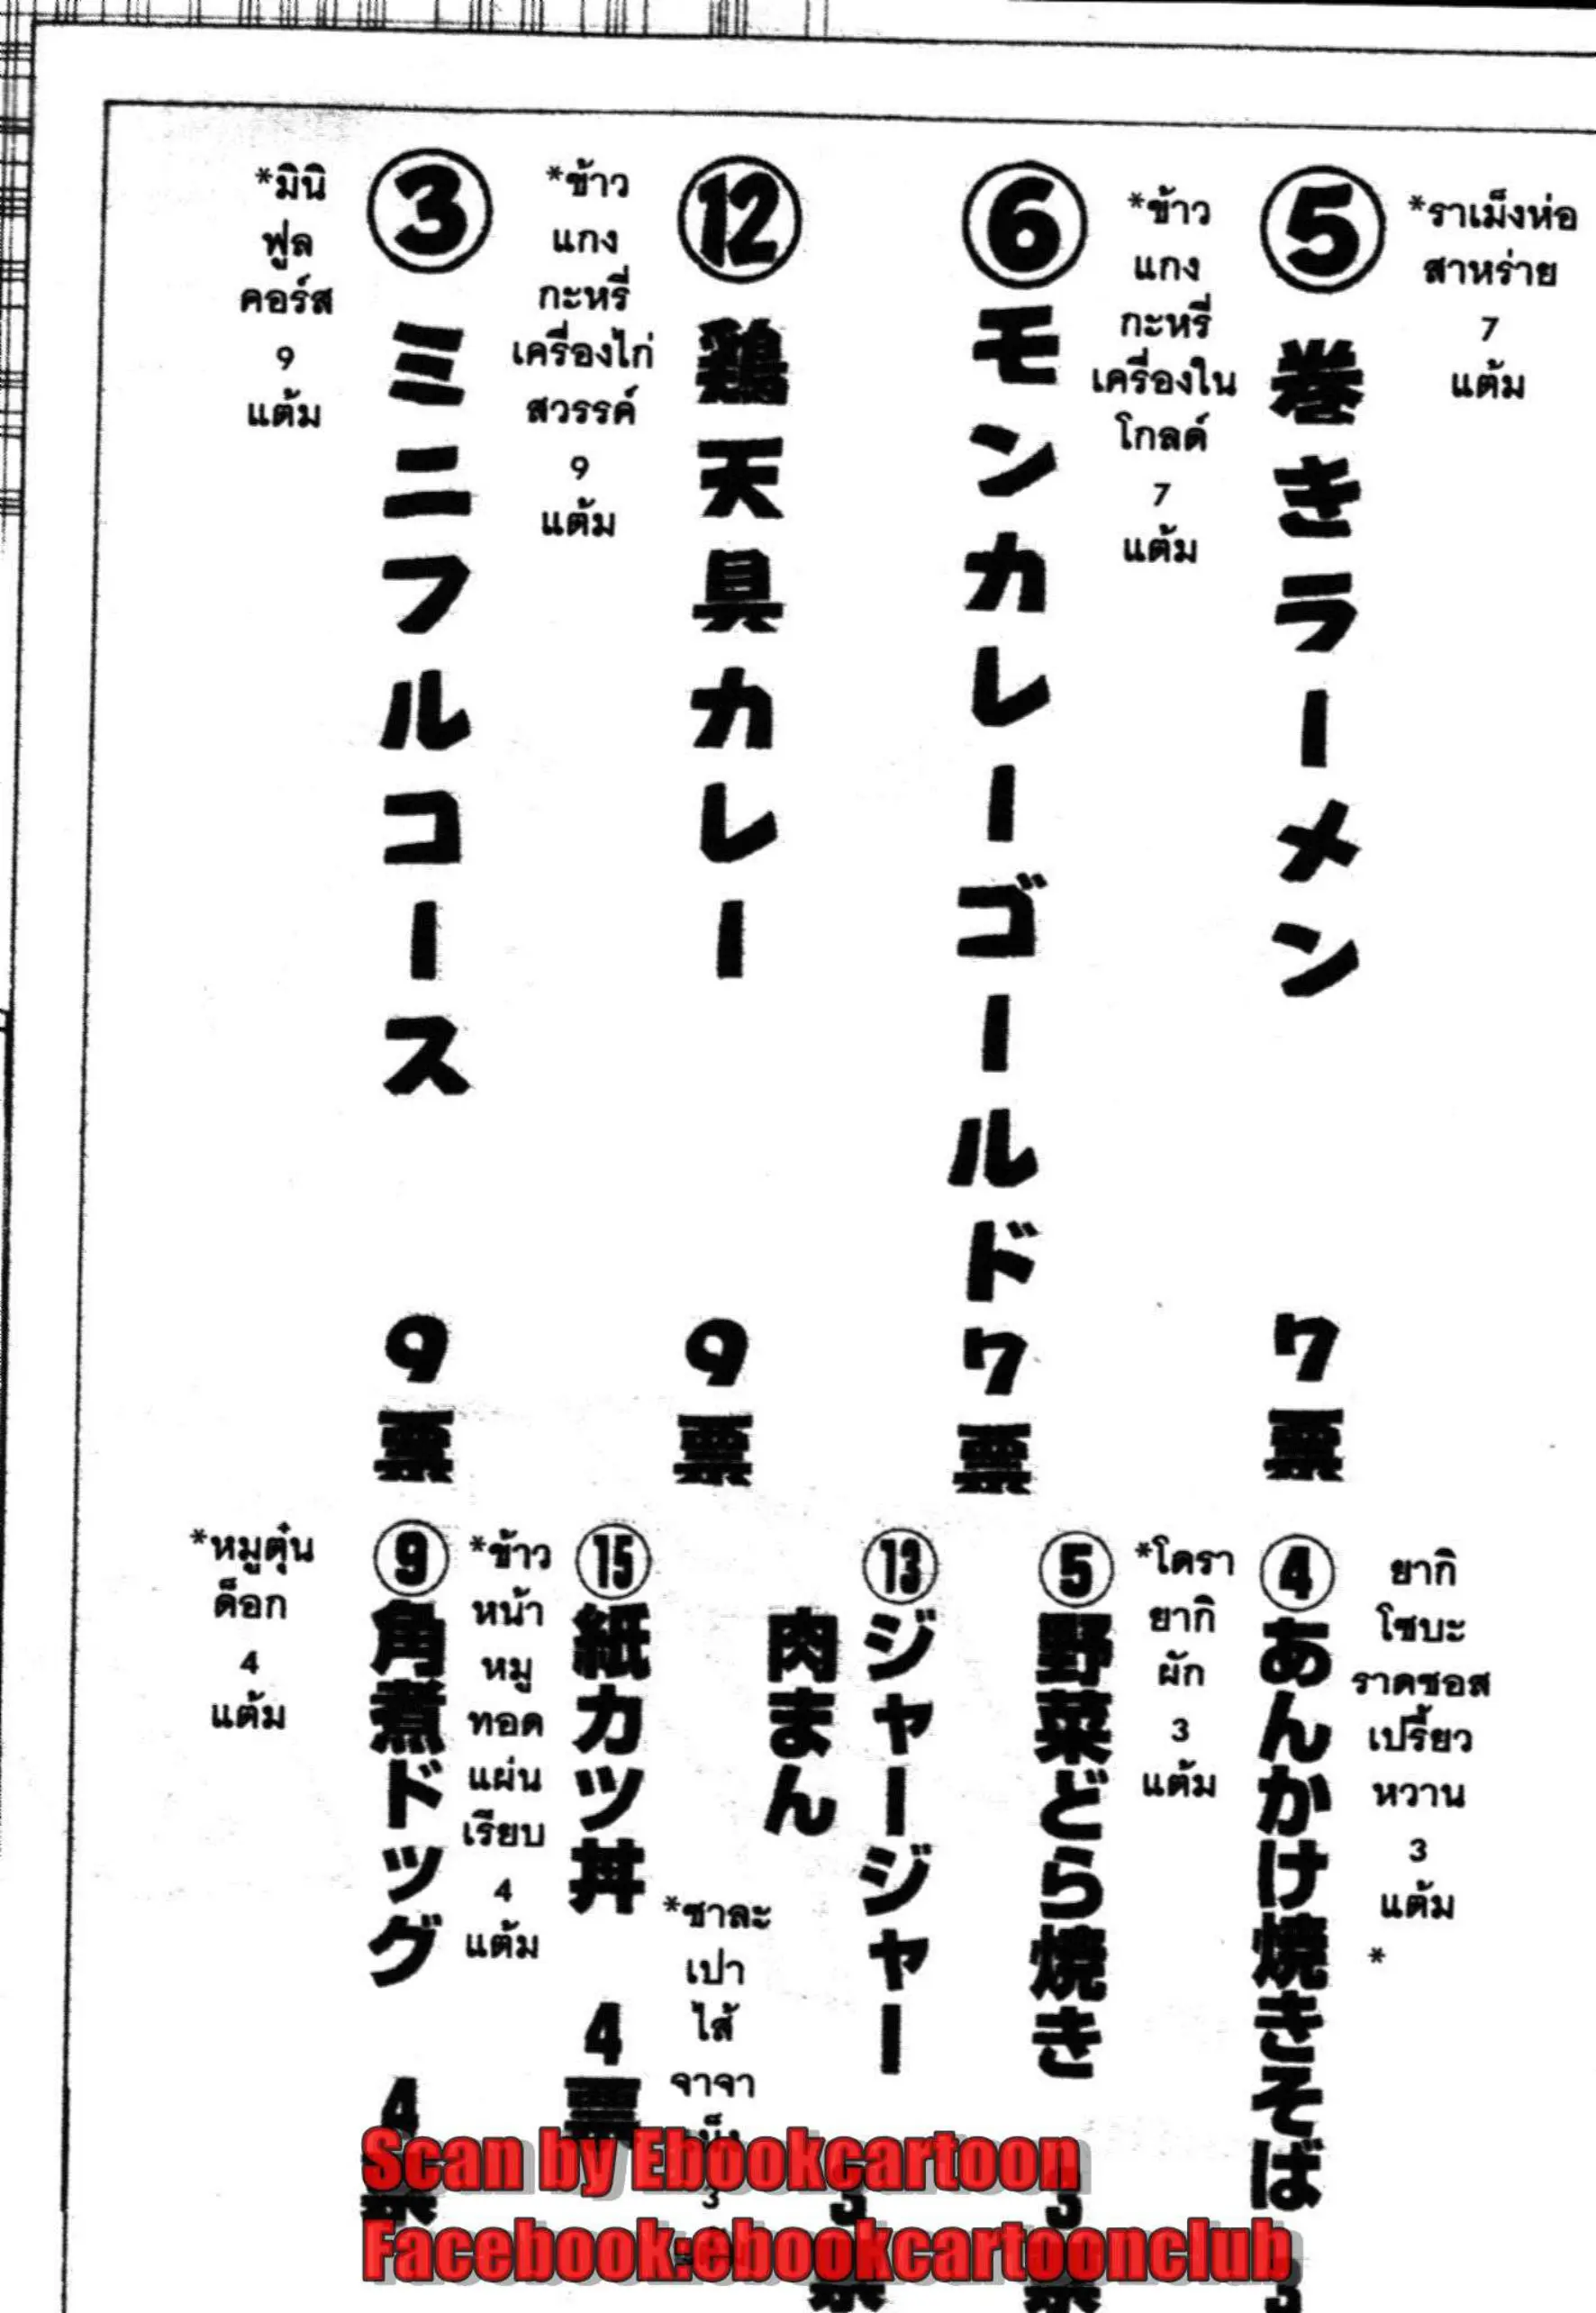 *ราเม็งห่อ
สาหร่าย
7
แต้ม
⑤巻きラーメン 7票
*ข้าว
แกง
กะหรี่
เครื่องใน
โกลด์
7
แต้ม
⑥モンカレーゴールド7票
⑫鶏天具カレー 9票
*ข้าว
แกง
กะหรี่
เครื่องไก่
สวรรค์
9
แต้ม
③ミニフルコース 9票
*มินิ
ฟูล
คอร์ส
9
แต้ม
ยากิ
โซบะ
ราดซอส
เปรี้ยว
หวาน
3
แต้ม
*
④あんかけ焼きそば 3
*โดรา
ยากิ
ผัก
3
แต้ม
⑤野菜どら焼き 3票
⑬ジャージャー
肉まん 3票
*ซาละ
เปา
ไส้
จาจา
3
⑮紙カツ丼 4票
*ข้าว
หน้า
หมู
ทอด
แผ่น
เรียบ
4
แต้ม
⑨角煮ドッグ 4票
*หมูตุ๋น
ด็อก
4
แต้ม
Scan by Ebookcartoon
Facebook:ebookcartoonclub